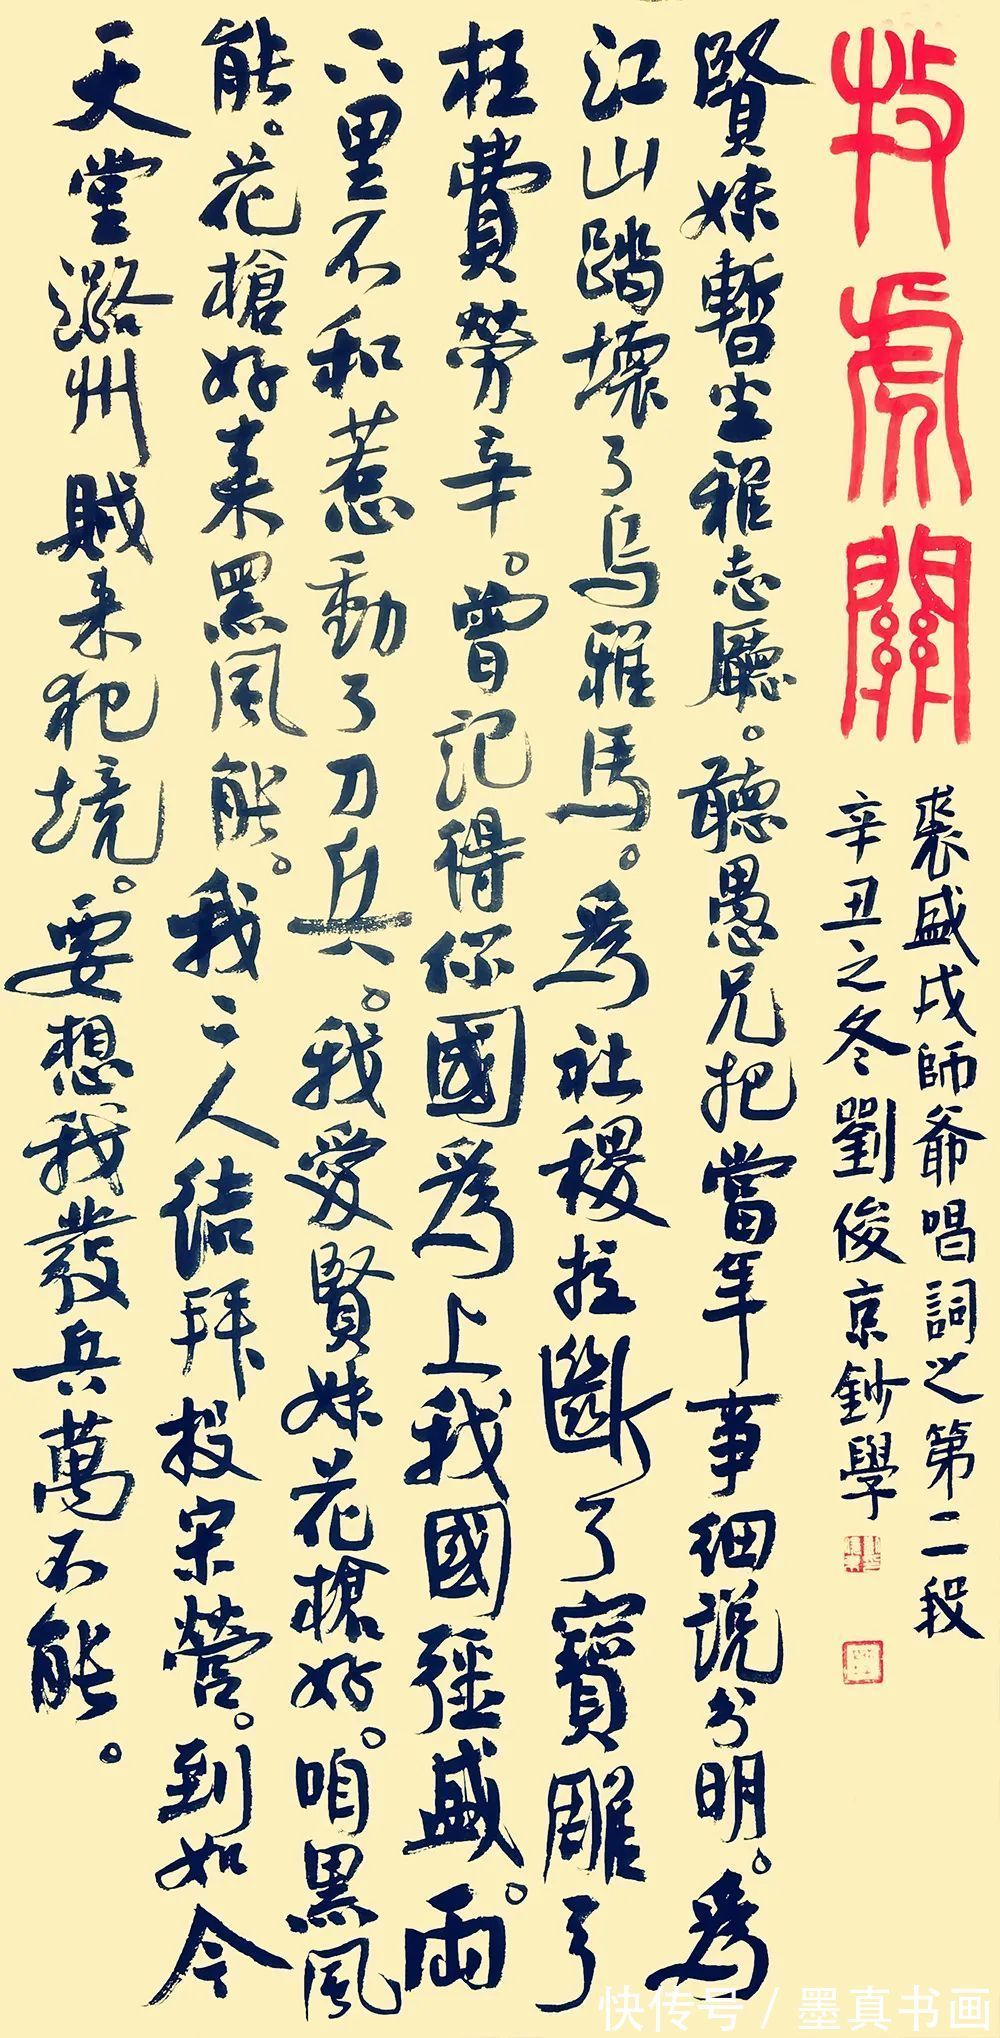 牧虎關
裘盛戎師爺唱詞之第二段
辛丑之冬劉俊京鈔學
賢妹暫坐雅志廳。聽愚兄把當年事細說分明。爲
江山踏壞了烏雅馬。爲社稷拉斷了寶雕弓
枉費勞辛。曾記得你國爲上我國強盛。兩
下里不和惹動了刀兵。我愛賢妹花槍好。咱黑風
能。花槍好來黑風能。我二人結拜投宋營。到如今
天堂潞州賊來犯境。要想我發兵萬不能。
快传号 / 墨真书画